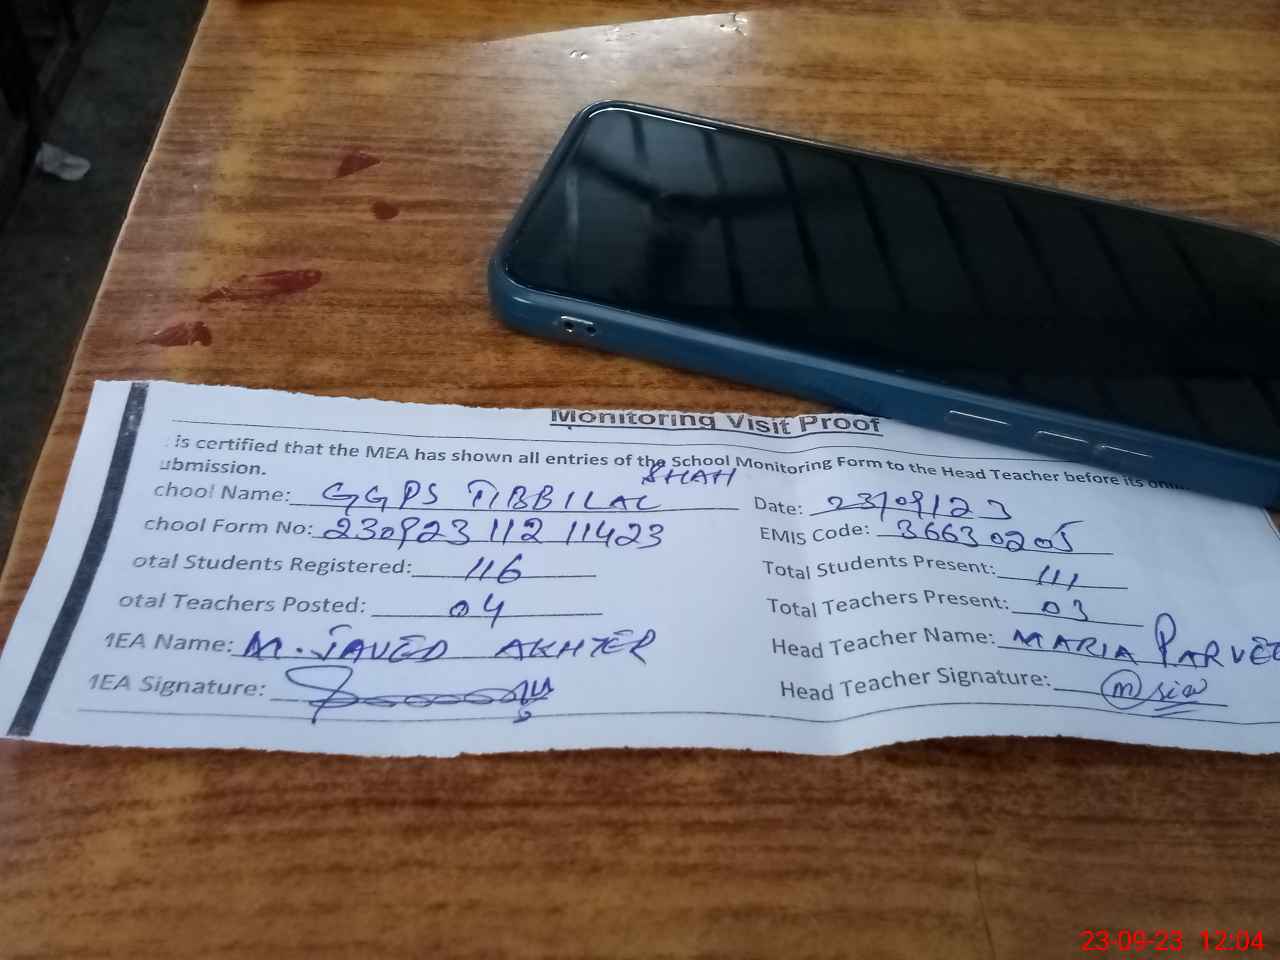 Monitoring Visit Proof
is certified that the MEA has shown all entries of the School Monitoring Form to the Head Teacher before its
ubmission.
chool Name: GGPS TIBBI LAL SHAH Date: 23/09/23
chool Form No: 230923 112 11423 EMIS Code: 36630205
otal Students Registered: 116 Total Students Present: 111
otal Teachers Posted: 04 Total Teachers Present: 03
MEA Name: M. JAVED AKHTER Head Teacher Name: MARIA PARVE
MEA Signature: Head Teacher Signature:
23-09-23 12:04